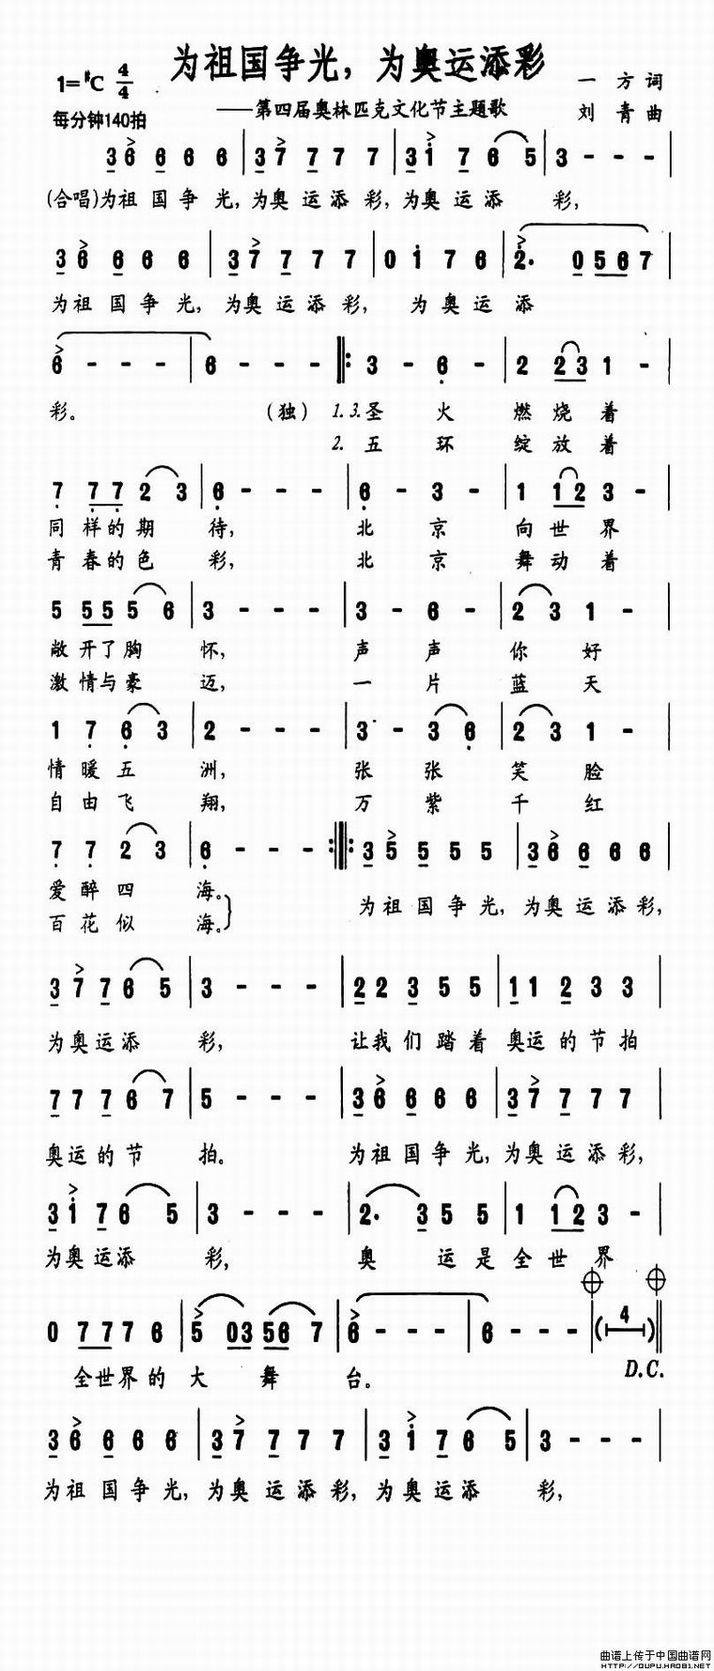 为祖国争光，为奥运添彩
1=♯C 4/4
一 方 词
每分钟140拍
——第四届奥林匹克文化节主题歌
刘 青 曲
3 6 6 6 6 | 3 7 7 7 7 | 3 1 7 6 5 | 3 - - - |
(合唱)为祖 国 争 光, 为奥 运 添 彩, 为奥 运 添 彩,
3 6 6 6 6 | 3 7 7 7 7 | 0 1 7 6 | 2. 0 5 6 7 |
为祖 国 争 光, 为奥 运 添 彩, 为 奥 运 添
6 - - - | 6 - - - ‖: 3 - 6 - | 2 2 3 1 - |
彩。 (独) 1.3.圣 火 燃 烧 着
2.五 环 绽 放 着
7 7 7 2 3 | 6 - - - | 6 - 3 - | 1 1 2 3 - |
同 样的期 待, 北 京 向 世 界
青 春的色 彩, 北 京 舞 动 着
5 5 5 5 6 | 3 - - - | 3 - 6 - | 2 3 1 - |
敞 开了胸 怀, 声 声 你 好
激 情与豪 迈, 一 片 蓝 天
1 7 6 3 | 2 - - - | 3 - 3 6 | 2 3 1 - |
情 暖 五 洲, 张 张 笑 脸
自 由 飞 翔, 万 紫 千 红
7 7 2 3 | 6 - - - :‖: 3 5 5 5 5 | 3 6 6 6 6 |
爱 醉 四 海。
为祖 国 争 光, 为奥 运 添 彩,
百 花 似 海。
3 7 7 6 5 | 3 - - - | 2 2 3 5 5 | 1 1 2 3 3 |
为奥 运 添 彩, 让我 们 踏 着 奥运 的 节 拍
7 7 7 6 7 | 5 - - - | 3 6 6 6 6 | 3 7 7 7 7 |
奥运 的 节 拍。 为祖 国 争 光, 为奥 运 添 彩,
3 1 7 6 5 | 3 - - - | 2. 3 5 5 | 1 1 2 3 - |
为奥 运添 彩, 奥 运 是 全 世 界
0 7 7 7 6 | 5 0 3 5 6 7 | 6 - - - | 6 - - - | (4) ‖
全世界 的 大 舞 台。 D.C.
3 6 6 6 6 | 3 7 7 7 7 | 3 1 7 6 5 | 3 - - - |
为祖 国 争 光, 为奥 运 添 彩, 为奥 运 添 彩,
曲谱上传于中国曲谱网
HTTP://QUPU.HAO81.NET